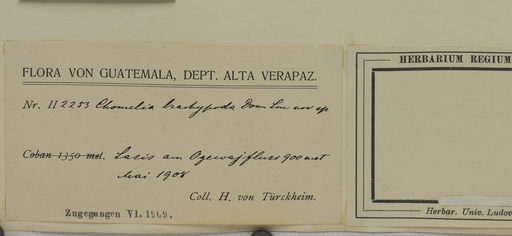 FLORA VON GUATEMALA, DEPT. ALTA VERAPAZ.
Nr. II 2253 Chomelia brachypoda Donn. Sm. nov sp.
Coban 1350 met. am 900 met
Mai 1908
Coll. H. von Türckheim.
Zugegangen VI. 1909.
HERBARIUM REGIUM
Herbar. Univ. Ludov